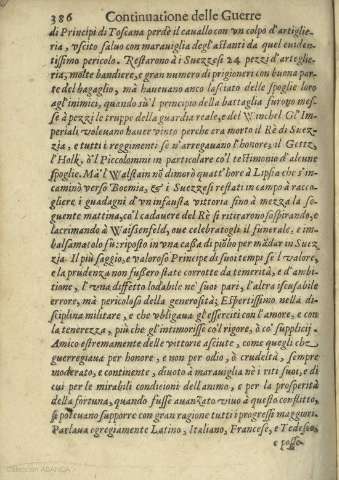 386 Continuatione delle Guerre
di Principi di Toscana perdè il cauallo con vn colpo d'artiglie-
ria, vscito saluo con marauiglia degl'astanti da quel euiden-
tissimo pericolo. Restarono à i Suezzesi 24 pezzi d'arteglie-
ria, molte bandiere, e gran numero di prigioneri con buona par-
te del bagaglio, mà haueuano anco lasciato delle spoglie loro
agl'inimici, quando sù l principio della battaglia furono mes-
se à pezzi le truppe della guardia reale, e del Winchel. Gl'Im-
periali voleuano hauer vinto perche era morto il Rè di Suez-
zia, e tutti i reggimenti se n'arrogauano l'honore, il Gettz,
l'Holk, ò'l Piccolomini in particolare co'l testimonio d'alcune
spoglie. Mà'l Walstain nõ dimorò quatt'hore à Lipsia che s'in-
caminò verso Boemia, & i Suezzesi restati in campo à racco-
gliere i guadagni d'vn infausta vittoria fino à mezza la se-
guente mattina, co'l cadauer del Rè si ritirarono sospirando, e
lacrimando à Waissenfeld, oue celebratogli il funerale, e im-
balsamatolo fù riposto in vna cassa di piõbo per mãdar in Suez-
zia. Il più saggio, e valoroso Principe di suoi tempi se l valore,
e la prudenza non fussero state corrotte da temerità, e d'ambi-
tione, l'vna diffetto lodabile ne' suoi pari, l'altra iscusabile
errore, mà pericoloso della generosità; Espertissimo nella di-
sciplina militare, e che vbligaua gl'esserciti con l'amore, e con
la tenerezza, più che gl'intimorisse co'l rigore, ò co' supplicij.
Amico estremamente delle vittorie asciute, come quegli che
guerregiaua per honore, e non per odio, ò crudeltà, sempre
moderato, e continente, diuoto à marauiglia nè i riti suoi, e di
cui per le mirabili condicioni dell'animo, e per la prosperità
della fortuna, quando fusse auanzato viuo à questo conflitto,
si poteuano supporre con gran ragione tutti i progressi maggiori.
Parlaua egregiamente Latino, Italiano, Francese, e Tedesco,
e posse-
Colección ABANCA